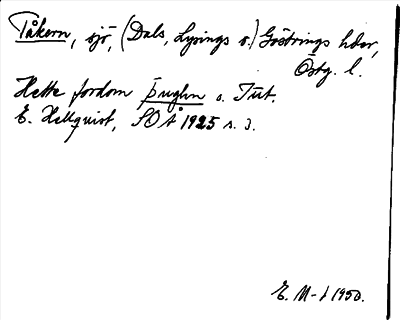 Tåkern, sjö, (Dals, Lysings o.) Göstrings hdor,
Östg. l.
Hette fordom Þughn o. Tüt.
E. Hellquist, SOÅ 1925 s. 3.
E. M-t 1950.